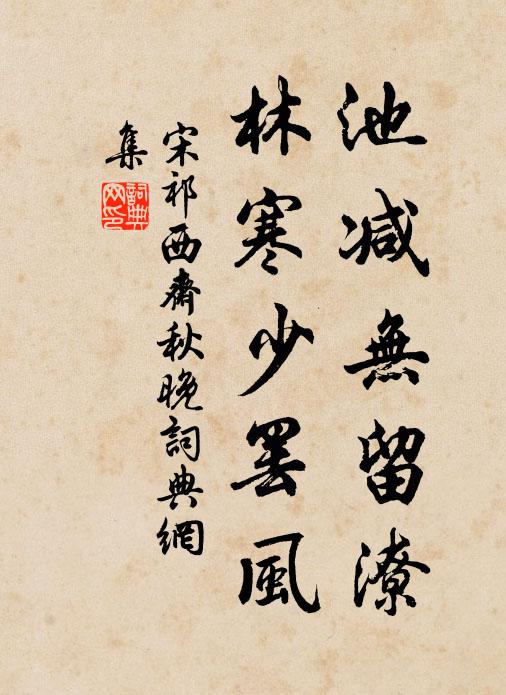 池减無留潦
林寒少罢風
宋祁西齋秋晚詞典網
集
詞典網印